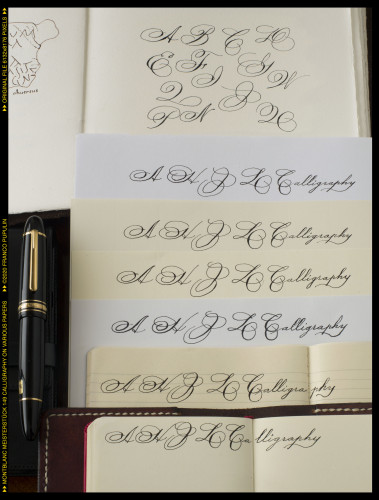 ORIGINAL FILE 6132x8176 PIXELS
©2020 FRANCO PUPULIN
MONTBLANC MEISTERSTÜCK 149 CALLIGRAPHY ON VARIOUS PAPERS
A B C D
E F G W
A H J L Calligraphy
A H J L Calligraphy
A H J L Calligraphy
A H J L Calligraphy
A H J L Calligraphy
A H J L Calligraphy